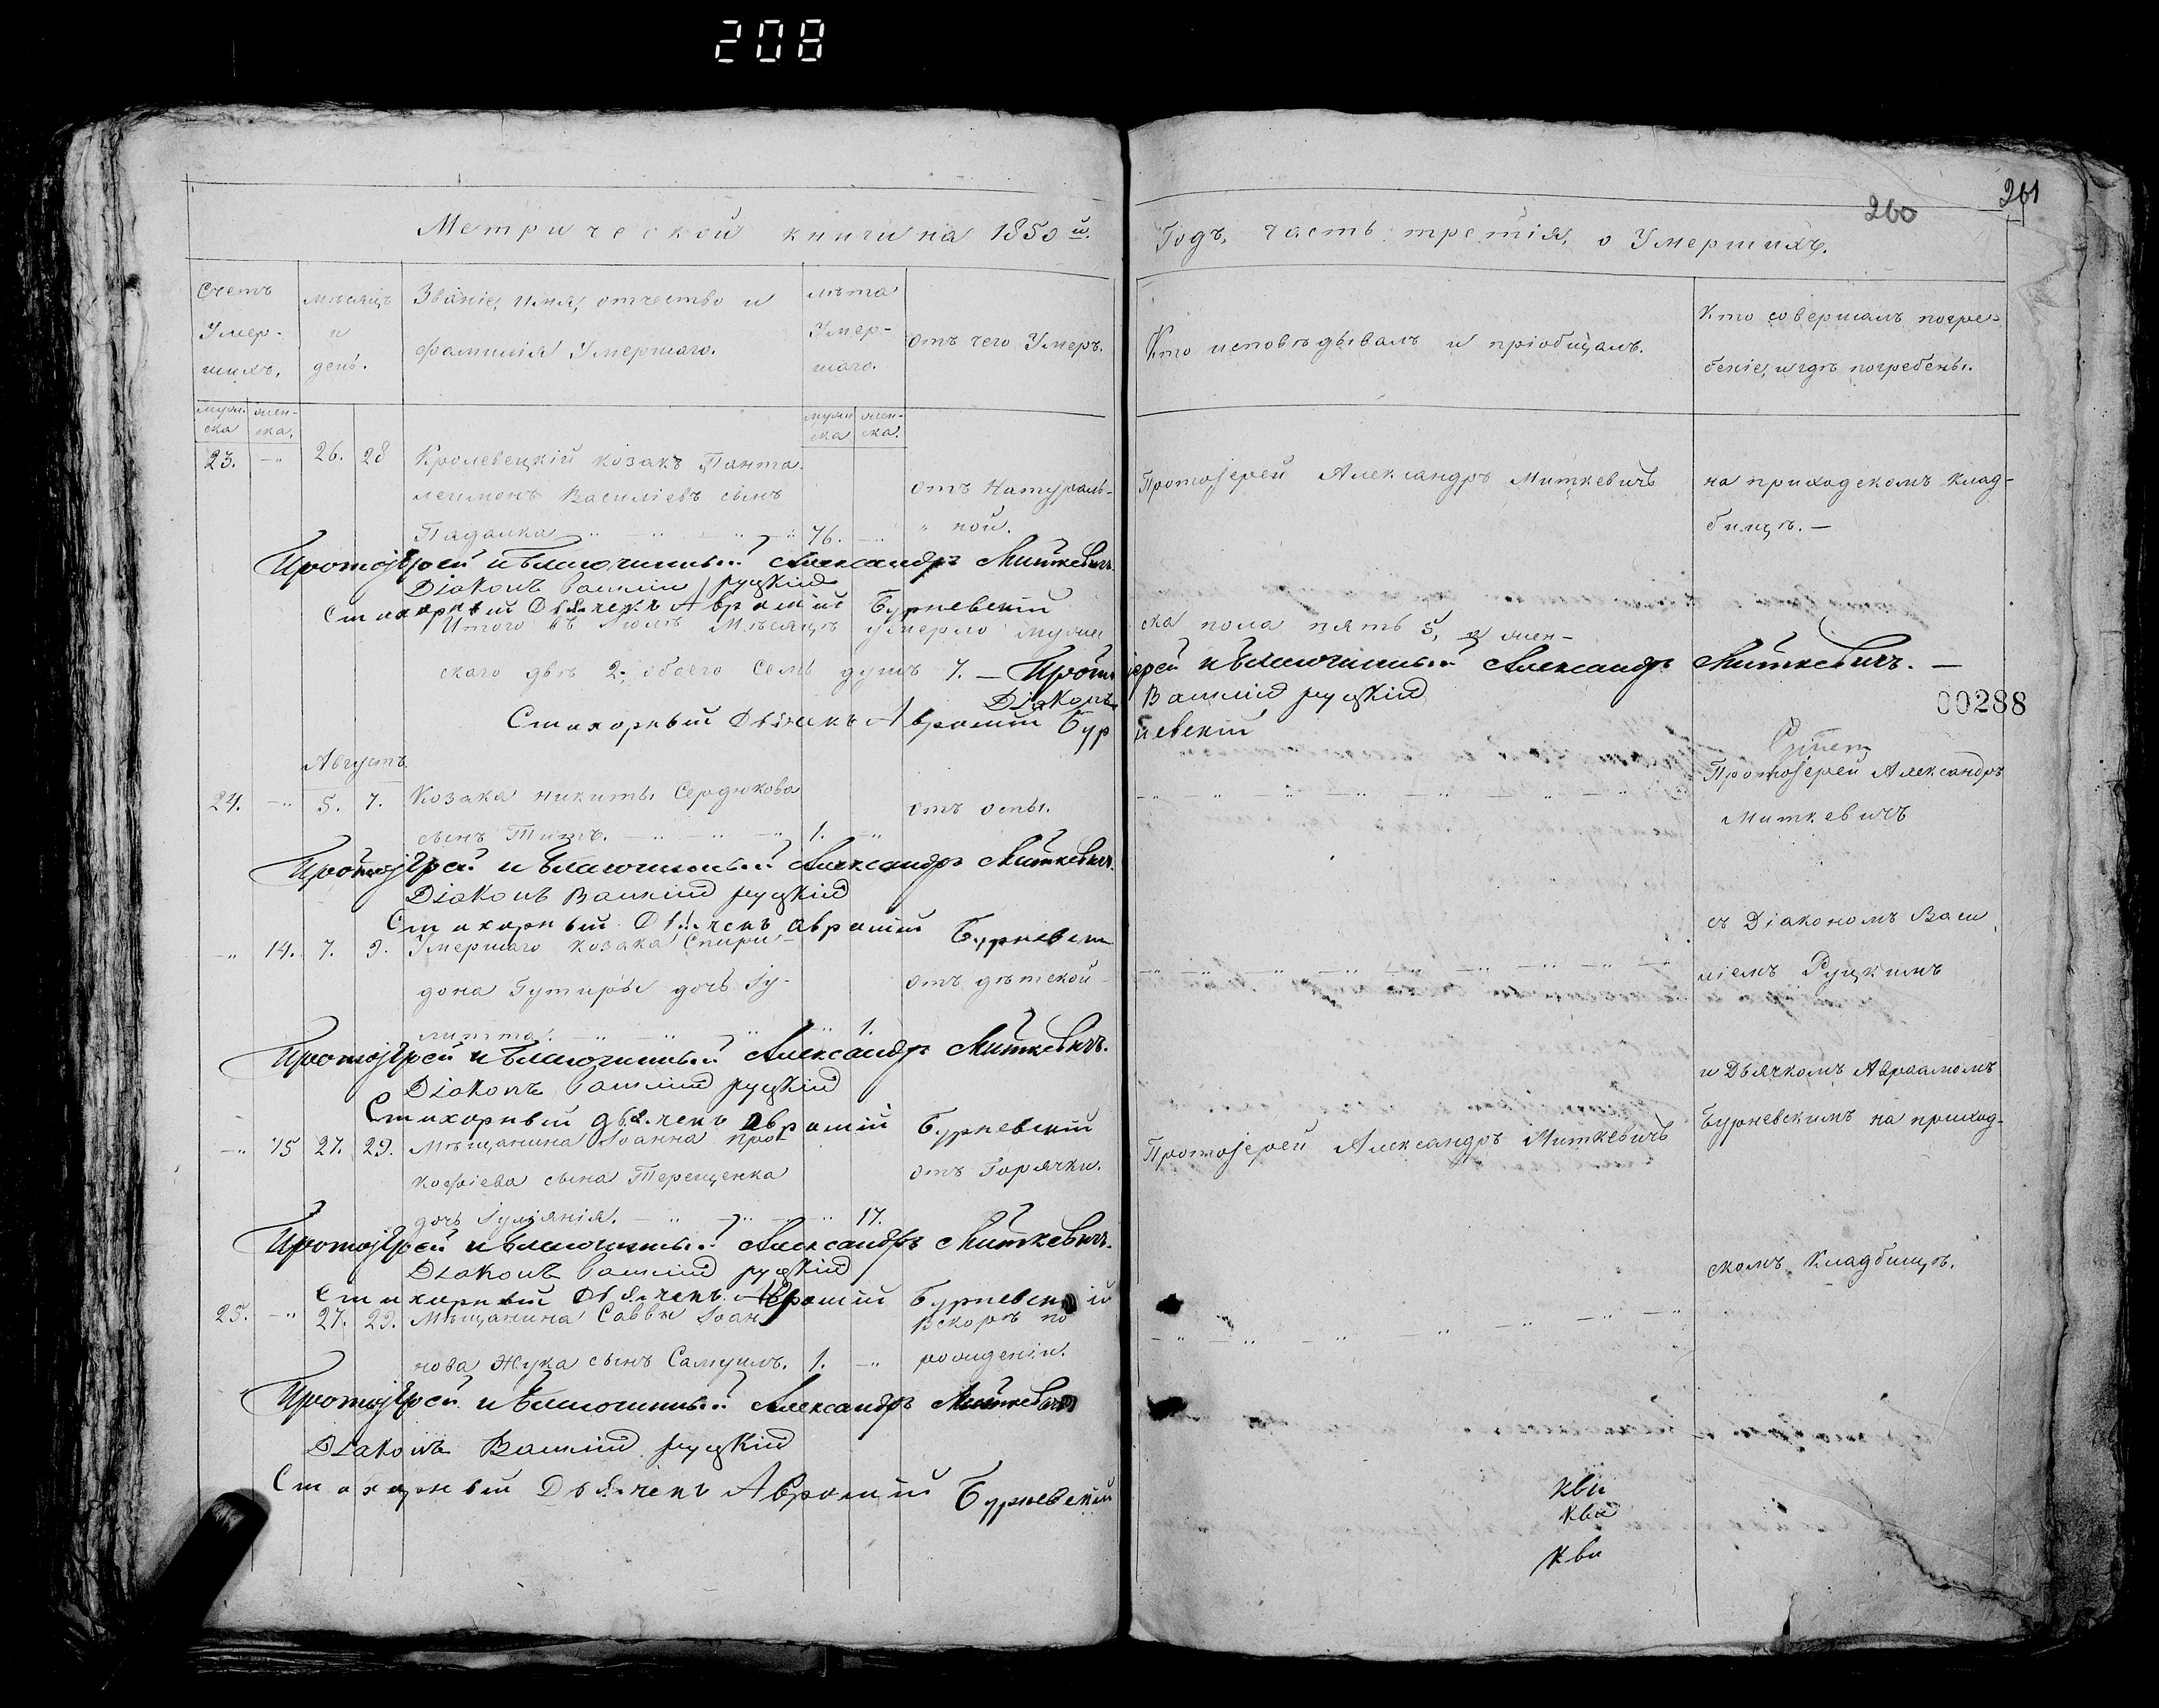 208
261
260
Метрической книги на 1850й.
Годъ, часть третія, о Умершихъ.
Счетъ Умер- шихъ.
мѣсяцъ и день.
Званіе, имя, отчество и фамилія Умершаго.
лѣта Умер- шаго.
отъ чего Умеръ.
Кто исповѣдывалъ и пріобщалъ.
Кто совершалъ погре- беніе, и гдѣ погребены.
муж- ска
жен- ска.
муж ска
жен- ска.
23. —" 26. 28 Кролевецкій козакъ Панта-
леимонъ Василіевъ сынъ
Падалка 76.
отъ натураль-
ной.
Протоіерей Александръ Миткевичъ
на приходскомъ клад-
бищѣ. —
Протоіерей и Благочинный Александръ Миткевичъ.
Діаконъ Василій Руцкій
Стихарный Дьячекъ Аврамій Бурневскій
Итого въ Іюлѣ Мѣсяцѣ умерло муже
ска пола пять 5, а жен-
скаго двѣ 2, обоего семь душъ 7. — Протоіерей и Благочинный Александръ Миткевичъ. —
Діаконъ Василій Руцкій
Стихарный Дьячекъ Аврамій Бурневскій
00288
Августъ.
24. —" 5. 7. Козака Никиты Сердюкова
сынъ Титъ. 1. —"
отъ оспы.
Протоіерей Александръ
Миткевичъ
Протоіерей и Благочинный Александръ Миткевичъ.
Діаконъ Василій Руцкій
Стихарный Дьячекъ Аврамій Бурневскій
—" 14. 7. 9. Умершаго козака Спири-
дона Гутиры дочь Іу-
литта. 1.
отъ дѣтской
съ Діакономъ Васи
ліемъ Руцкимъ
Протоіерей и Благочинный Александръ Миткевичъ.
Діаконъ Василій Руцкій
Стихарный Дьячекъ Аврамій Бурневскій
и Дьячкомъ Авраамомъ
Бурневскимъ на приход-
—" 15 27. 29. Мѣщанина Іоанна Про-
кофіева сына Терещенка
дочь Іуліанія. 17.
отъ Горячки.
Протоіерей Александръ Миткевичъ
Протоіерей и Благочинный Александръ Миткевичъ.
Діаконъ Василій Руцкій
Стихарный Дьячекъ Аврамій Бурневскій
скомъ Кладбищѣ.
25. —" 27. 29. Мѣщанина Саввы Іоан
нова Жука сынъ Самуилъ. 1. —"
Вскорѣ по
рожденіи.
Протоіерей и Благочинный Александръ Миткевичъ
Діаконъ Василій Руцкій
Стихарный Дьячекъ Аврамій Бурневскій